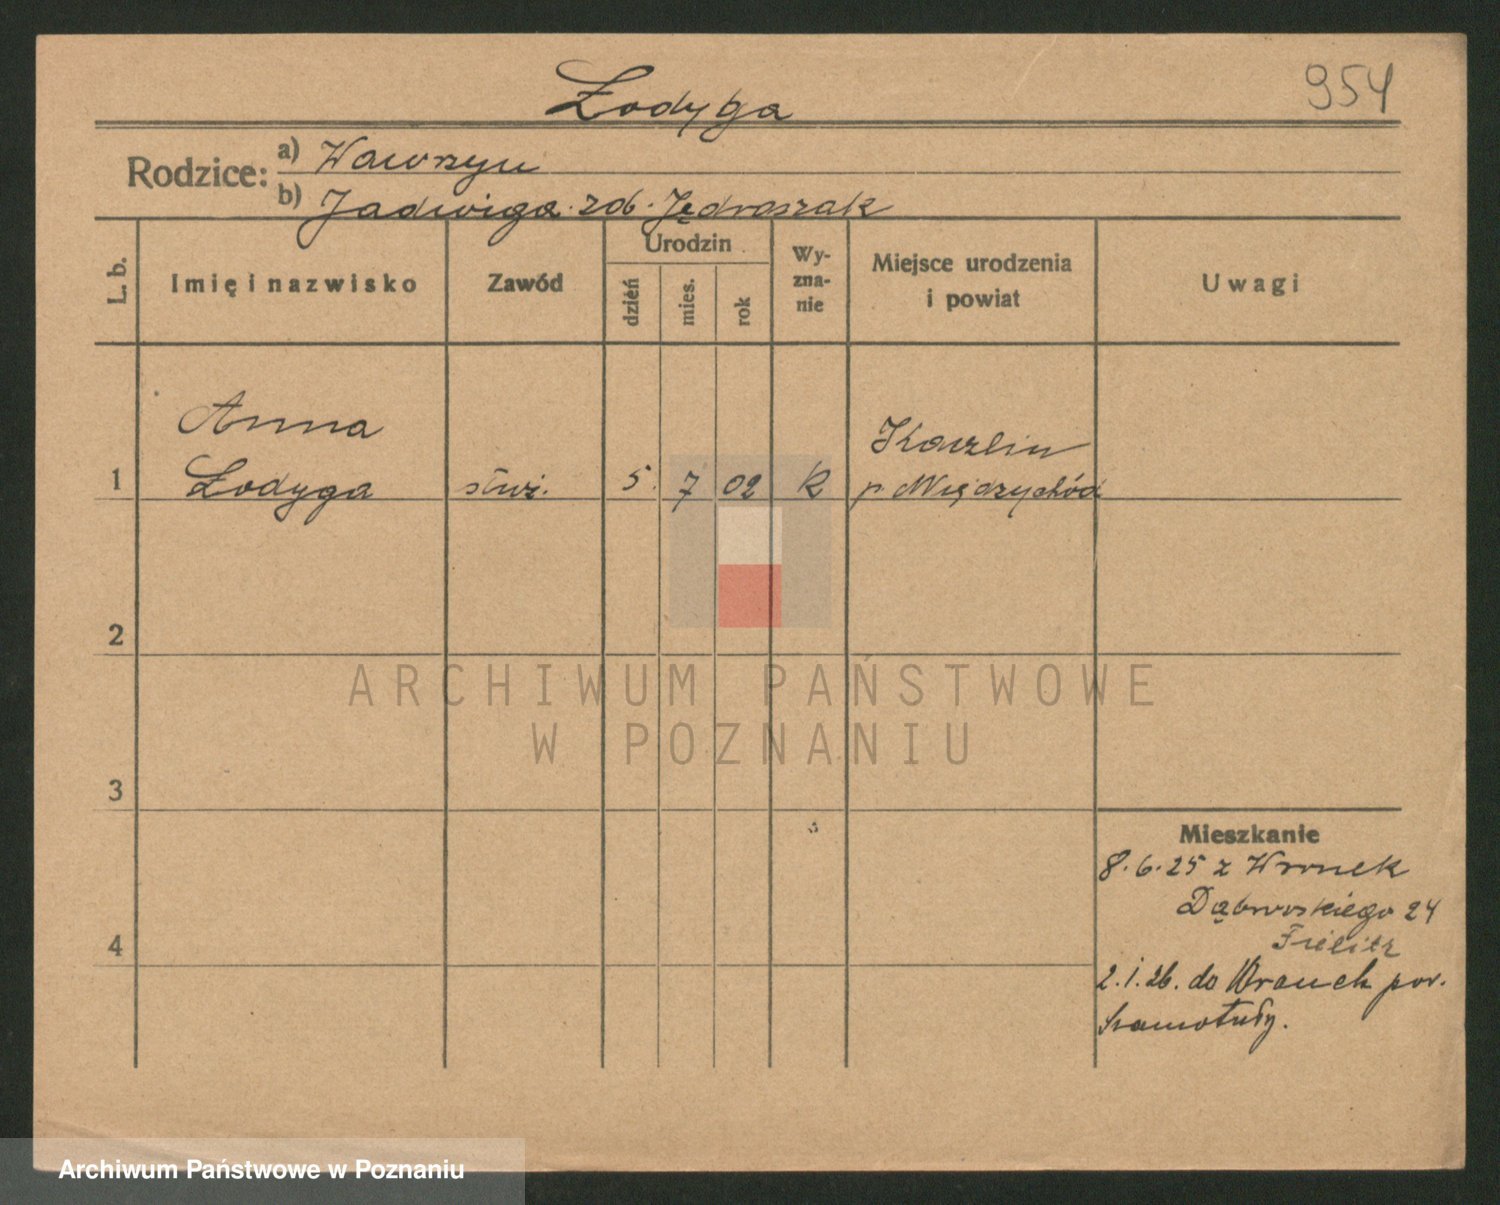 Łodyga
954
Rodzice:
a) Wawrzyn
b) Jadwiga zd. Jędraszak
L. b.
Imię i nazwisko
Zawód
Urodzin
dzień
mies.
rok
Wy-
zna-
nie
Miejsce urodzenia
i powiat
Uwagi
Anna
1 Łodyga służ. 5. 7 02 K
Kaczlin
p. Międzychód
2
3
4
Mieszkanie
8.6.25 z Wronek
Dąbrowskiego 24
2.1.26. do Wronek pow.
Szamotuły.
ARCHIWUM PAŃSTWOWE
W POZNANIU
Archiwum Państwowe w Poznaniu